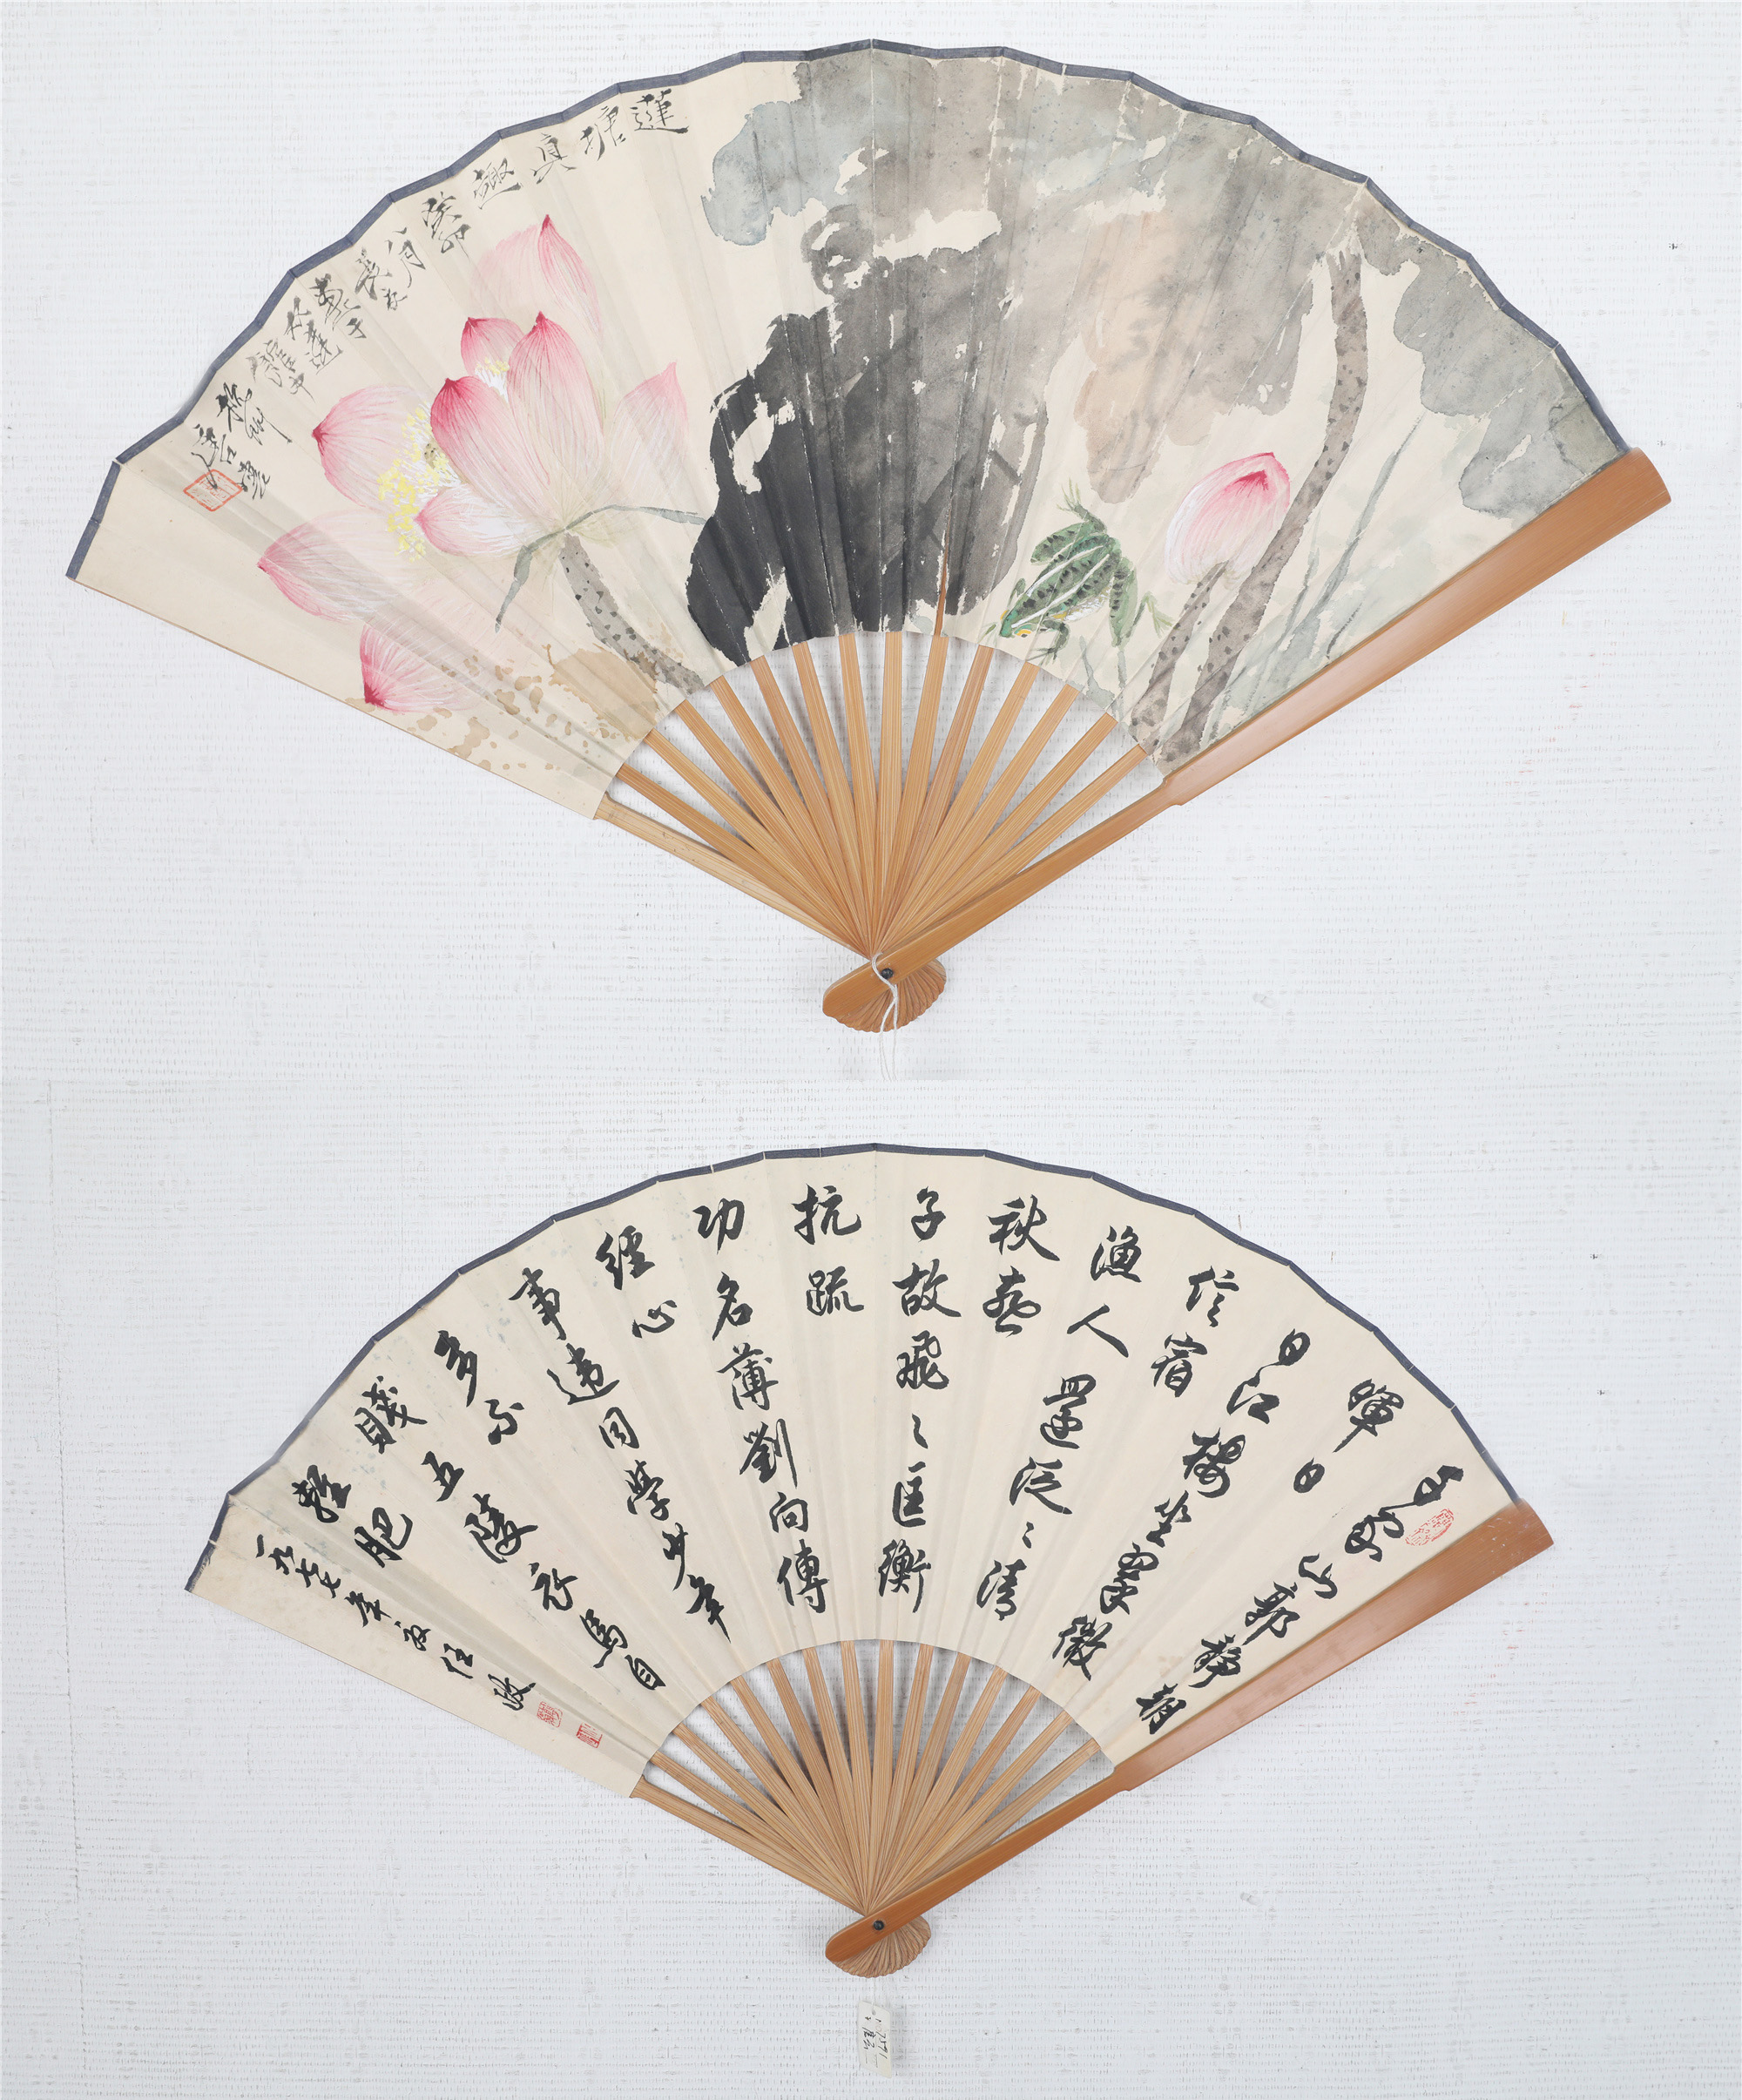 蓮
塘
真
趣
癸卯
八月
畫于
館中
唐石
霞
千家山郭靜朝
暉日
日江樓坐翠微
信宿
漁人還泛〻清
秋燕
子故飛〻匡衡
抗疏
功名薄劉向傳
經心
事違同學少年
多不
賤五陵衣馬自
輕肥
一九七七年夏任政